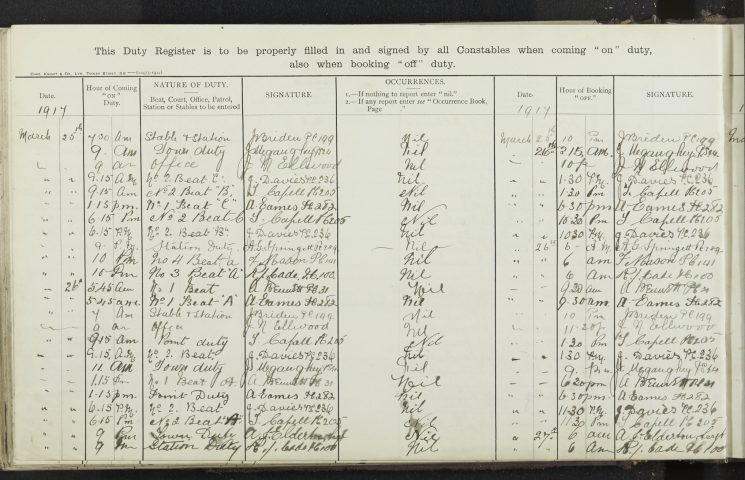 This Duty Register is to be properly filled in and signed by all Constables when coming "on" duty,
also when booking "off" duty.
Date. Hour of Coming "ON" Duty. NATURE OF DUTY. Beat, Court, Office, Patrol, Station or Stables to be entered SIGNATURE. OCCURRENCES. 1.—If nothing to report enter "nil." 2.—If any report enter see "Occurrence Book, Page ." Date. Hour of Booking "OFF." SIGNATURE.
1917 1917
March 25th 7 30 am Stable & Station J Briden PC 199 Nil March 25th 10 Pm J Briden PC 199
9 am Town duty Nil 26th 2 15 am
9 am Office J N Ellwood Nil 10 J N Ellwood
9.15 A.M. No 2 Beat "C" J. Davies Pc 236 Nil 1.30 P.M. J. Davies Pc 236
9.15 am No 2 Beat "B" T Capell Pc 205 Nil 1.30 Pm T Capell Pc 205
1.15 p.m. No 1 Beat "C" A Eames Pc 282 Nil 6.30 pm A Eames Pc 282
6.15 Pm No 2 Beat C T Capell Pc 205 Nil 10 30 Pm T Capell Pc 205
6.15 P.M. No 2 Beat "B" J Davies Pc 236 Nil 10 30 P.M. J Davies Pc 236
9 P.M. Station Duty Nil 26th 6 A.M.
10 Pm No 4 Beat a T Mason Pc 141 Nil 6 am T Mason Pc 141
10 Pm No 3 Beat "A" R J. Cade, Pc 100 Nil 6 am R J Cade Pc 100
26th 5.45 am No 1 Beat Nil 9.30 am
5.45 am No 1 Beat "A" A Eames Pc 282 Nil 9.30 am A Eames Pc 282
7 am Stable & Station J Briden PC 199 Nil 10 Pm J Briden PC 199
9 am Office J N Ellwood Nil 11.20 J N Ellwood
9.15 am Point duty T Capell Pc 205 Nil 1.30 Pm T Capell Pc 205
9.15 A.M. No 2. Beat J Davies Pc 236 Nil 1.30 P.M. J Davies Pc 236
11 am Town duty Nil 9 Pm
1.15 Pm No 1 Beat A Nil 6 20 pm
1.15 pm Point Duty A Eames Pc 282 Nil 6.30 pm A Eames Pc 282
6.15 P.M. No 2. Beat J Davies Pc 236 Nil 11.30 P.M. J Davies Pc 236
6.15 Pm No 2 Beat "A" T Capell Pc 205 Nil 11.30 Pm T Capell Pc 205
9 Pm Town Duty Nil 27th 6 am
9 Pm Station Duty R. J. Cade Pc 100 Nil 6 am R. J. Cade Pc 100